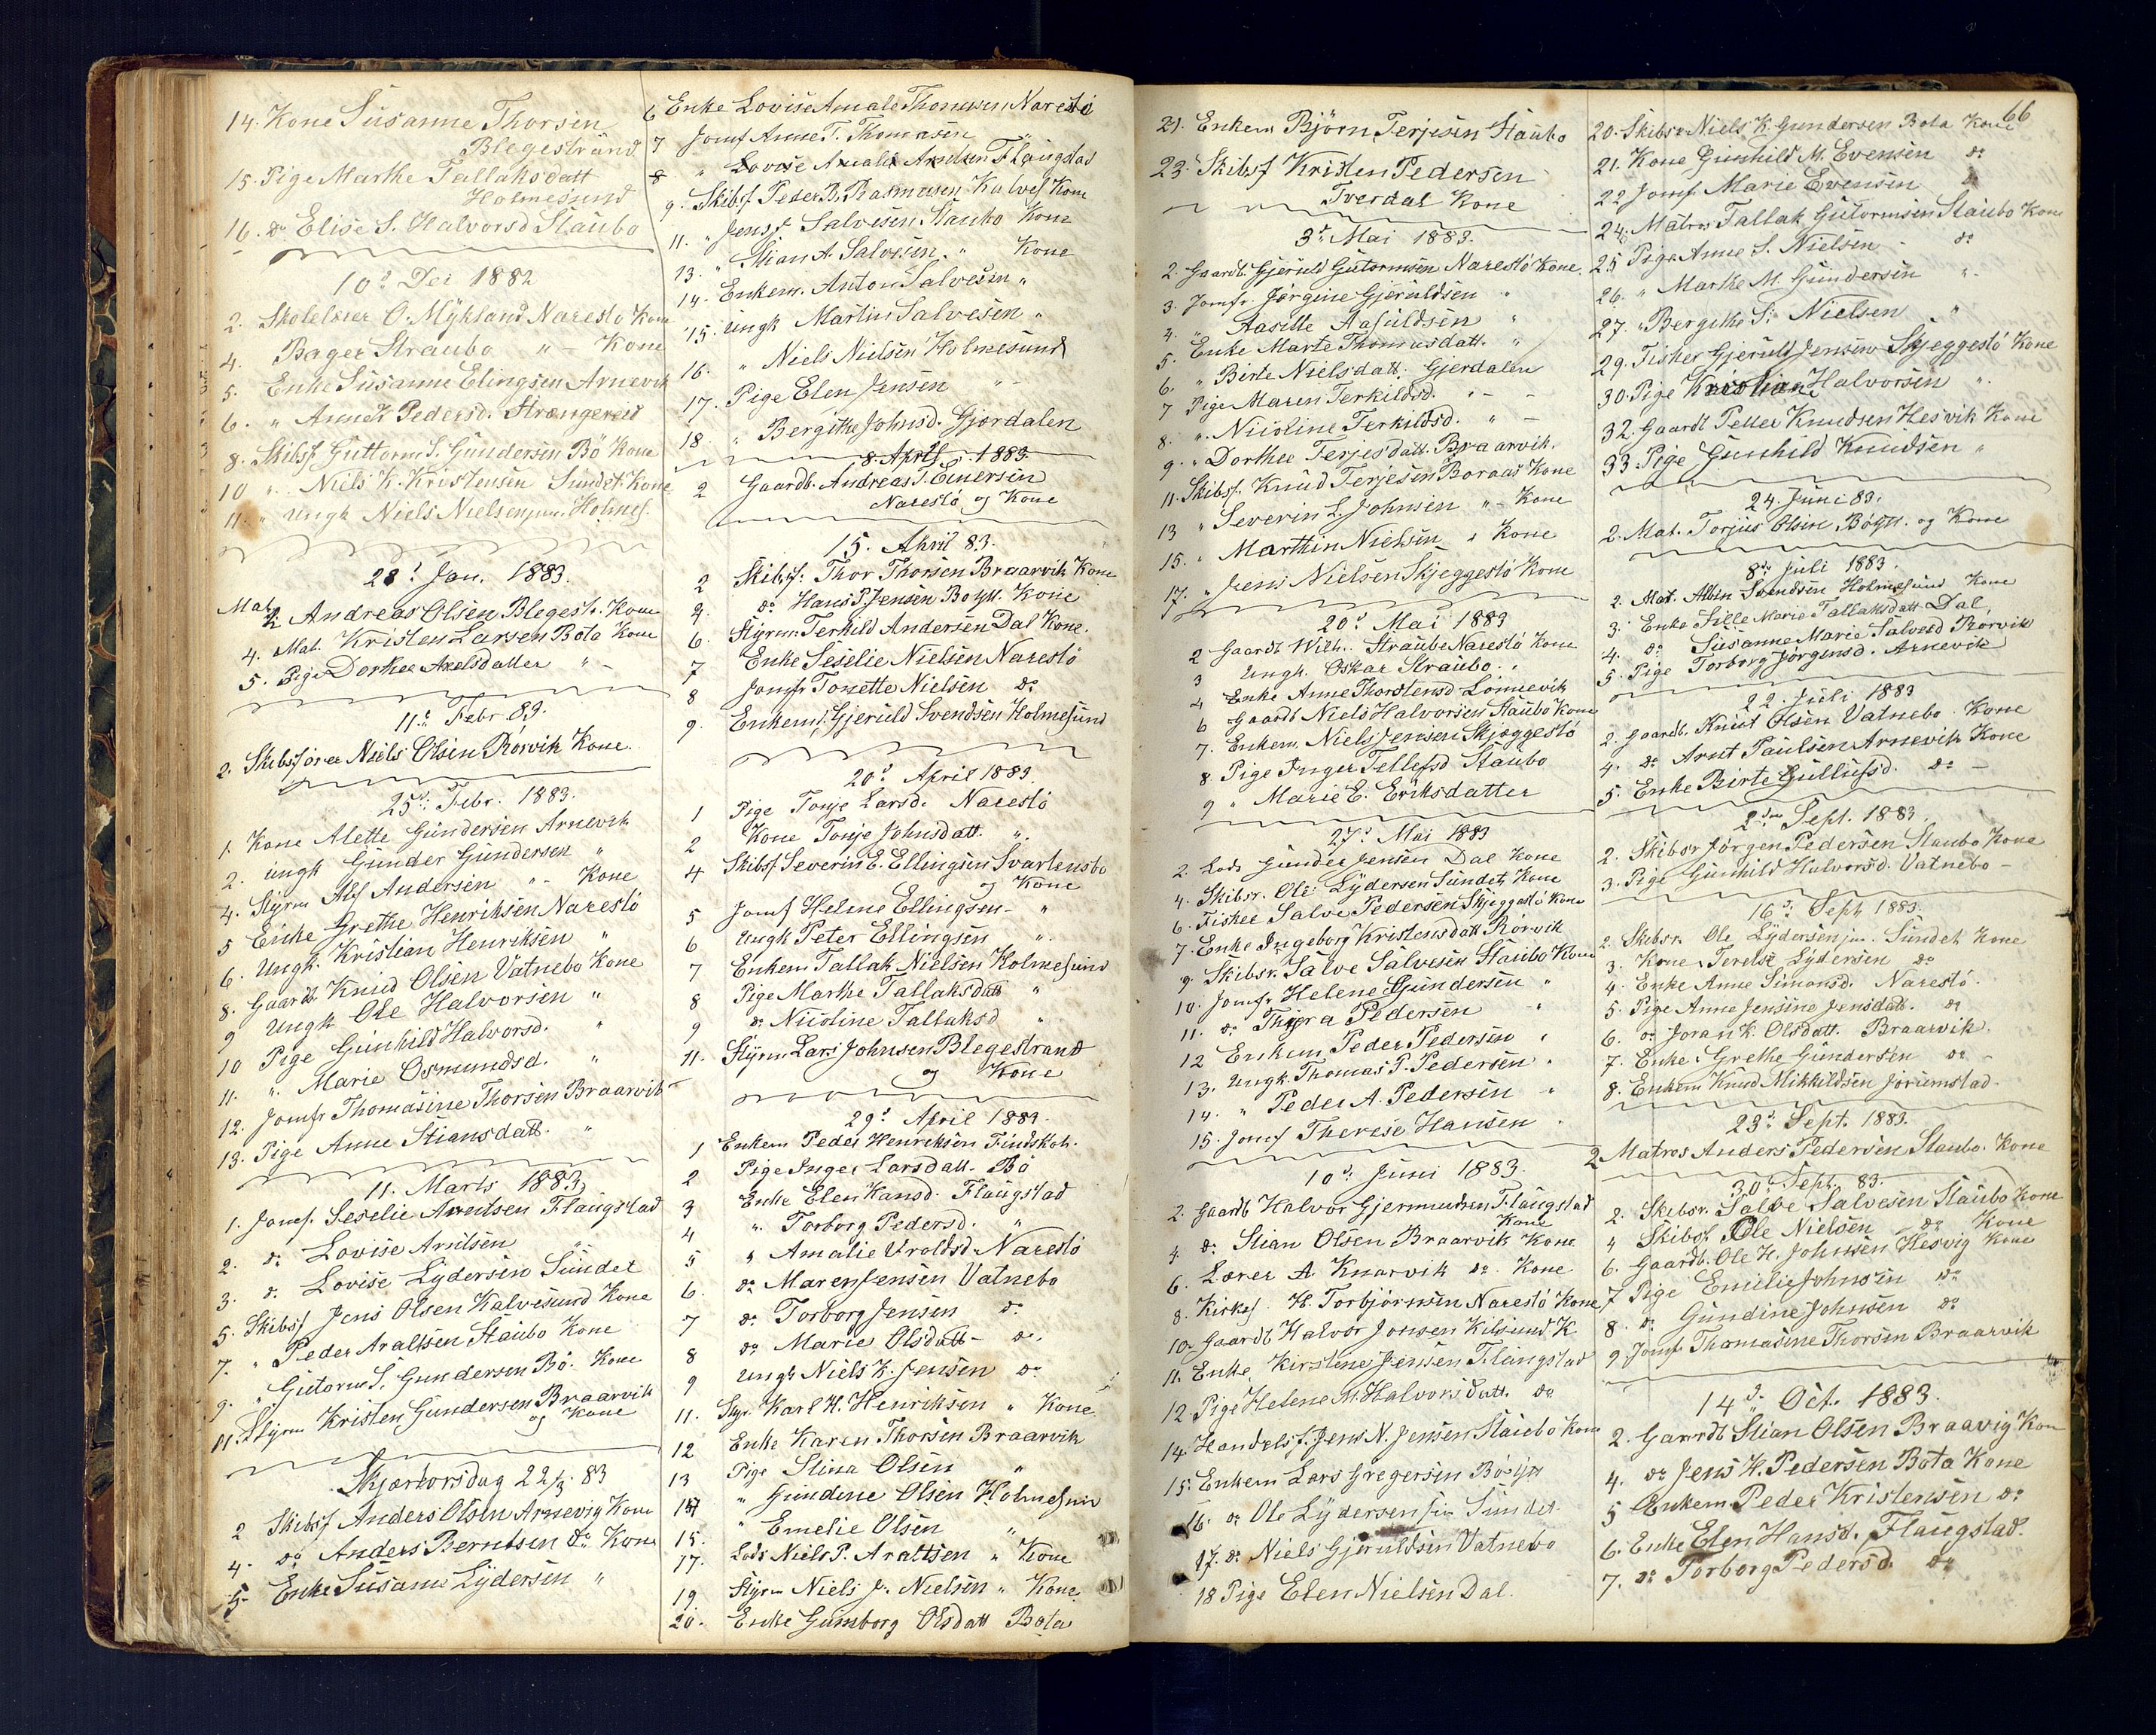 14. Kone Susanne Thorsen
Blegestrand
15. Pige Marthe Tallaksdatt
Holmesund
16. do Elise S. Halvorsd Staubo
10de Dec 1882
2. Skolelærer O. Mykland Narestø Kone
4. Bager Straubo " - Kone
5. Enke Susanne Elingsen Arnevik
6. " Anne K Pedersd. Strængereid
8. Skibsf Guttorm S. Gundersen Bø Kone
10 " Niels K. Kristensen Sundet Kone
11. " Ungk Niels Nielsen jun. Holmes.
28d Jan. 1883.
Mat. 2 Andreas Olsen Blegest. Kone
4. Mat. Kristen Larsen Bota Kone
5. Pige Dorthea Axelsdatter " -
11te Febr 83.
2. Skibsfører Niels Olsen Rørvik Kone.
25de Febr. 1883.
1. Kone Alette Gundersen Arnevik
2. Ungk Gunder Gundersen "
4. Styrm Alf Andersen " - Kone
5 Enke Grethe Henriksen Narestø
6. Ungk. Kristian Henriksen "
8. Gaardb Knud Olsen Vatnebo Kone
9 Ungk Ole Halvorsen "
10 Pige Gunhild Halvorsd. "
11. " Marie Osmundsd. "
12. Jomfr Thomasine Thorsen Braarvik
13. Pige Anne Stiansdatt. "
11. Marts 1883
1. Jomf. Seselie Arntsen Flaugstad
2. do Lovise Arntsen "
3. d. Lovise Lydersen Sundet
5. Skibsf Jens Olsen Kalvesund Kone
7. " Peder Araltsen Staubo Kone
9. " Gutorm S. Gundersen Bø. Kone
11. Styrm Kristen Gundersen Braarvik
og Kone
Skjærtorsdag 22/3. 83
2 Skibsf Anders Olsen Arnevig Kone
4. do Anders Berntsen do Kone
5 Enke Susanne Lydersen "
6 Enke Lovise Amale Thomesen Narestø
7 Jomf Anne T. Thomasen "
8 " Lovise Amalie Arntsen Flaugstad
9. Skibsf. Peder B. Rasmusen Kalves Kone
11. " Jens S. Salvesen Staubo Kone
13. " Stian A. Salvesen. " Kone
14. Enkem. Anton Salvesen "
15. Ungk Martin Salvesen "
16. " Niels Nielsen Holmesund
17. Pige Elen Jensen " -
18 " Bergithe Johnsd. Gjerdalen
8. April 1883.
2 Gaardb. Andreas T. Einersen
Narestø og Kone
15. April 83.
2 Skibsf: Thor Thorsen Braarvik Kone
4. do Hans P. Jensen Boyll. Kone
6. Styrm. Terkild Andersen Dal Kone.
7 Enke Seselie Nielsen Narestø
8 Jomfr Tonette Nielsen do
9. Enkem. Gjeruld Svendsen Holmesund
20d April 1883.
1 Pige Tonje Larsd. Narestø
2 Kone Tonje Johnsdatt. "
4 Skibsf Severin E. Ellingsen Svartensbo
og Kone
5 Jomf Helene Ellingsen - "
6 Ungk Peter Ellingsen "
7 Enkem Tallak Nielsen Holmesund
8 Pige Marthe Tallaksdatt "
9 do Nicoline Tallaksd "
11. Styrm Lars Johnsen Blegestrand
og Kone
29d April 1883.
1 Enkem Peder Henriksen Findskoh.
2 Pige Inger Larsdatt. Bø
3 Enke Elen Hansd. Flaugstad
4 " Torborg Pedersd. "
5 " Amalie Uroldsd. Narestø
6. do Maren Jensen Vatnebo
7 do Torborg Jensen do
8 do Marie Olsdatt - do.
9 Ungk Niels K. Jensen do
11. Styr. Karl H. Henriksen " Kone
12 Enke Karen Thorsen Braarvik
13 Pige Stina Olsen "
14 " Gundine Olsen Holmesun
15. " Emelie Olsen "
17. Lods Niels P. Arattsen " Kone
19. Styrm Niels J. Nielsen " Kone.
20. Enke Gunborg Olsdatt Bota
66
21. Enkem Bjørn Terjesen Staubo
23. Skibsf Kristen Pedersen
Tverdal Kone
3d Mai 1883.
2. Gaardb. Gjeruld Gutormsen Narestø Kone.
3. Jomfr. Jørgine Gjeruldsen "
4. " Aasille Aasuldsen "
5. Enke Marte Thomasdatt. "
6. " Birte Nielsdatt. Gjerdalen
7 Pige Maren Terkildsd. " -
8. ". Nicoline Terkildsd. " -
9. " Dorthee Terjesdatt. Braarvik.
11. Skibsf. Knud Terjesen Boraas Kone
13 " Severin L. Johnsen " - Kone
15. " Marthin Nielsen " Kone
17. " Jens Nielsen Skjeggestø Kone
20d Mai 1883
2 Gaardb Wilh. Straube Narestø Kone
3 Ungk. Oskar Straubo. "
4 Enke Anne Thorstensd Lønnevik
6 Gaardb Niels Halvorsen Staubo Kone
7. Enkem. Niels Jensen Skjeggestø
8 Pige Inger Tellefsd Staubo
9 " Marie E. Eriksdatter
27d Mai 1883
2. Lods Gunder Jensen Dal Kone
4. Skibsr. Ole Lydersen Sundet Kone
6. Fisker Salve Pedersen Skjeggestø Kone
7. Enke Ingeborg Kristensdatt Rørvik
9. Skibsr. Salve Salvesen Staubo Kone
10. Jomfr Helene Gundersen "
11. do Thora Pedersen "
12 Enkem. Peder Pedersen "
13. Ungk. Thomas P. Pedersen "
14. " Peder A. Pedersen "
15. Jomf Therese Hansen "
10d Juni 1883.
2. Gaardb Halvor Gjermundsen Flaugstad
Kone
4 do Stian Olsen Braarvik Kone.
6. Lærer A. Knarvik do. Kone
8. Kirkes. H. Torbjørnsen Narestø Kone
10. Gaardb Halvor Jonsen Kilsund K.
11. Enke Kirstine Jensen Flaugstad
12. Pige Helene M. Halvorsdatt. do
14. Handelsf. Jens N. Jensen Staubo Kone
15. Enkem Lars Gregersen Bø
16. do Ole Lydersen sen Sundet
17. do Niels Gjeruldsen Vatnebo
18 Pige Elen Nielsen Dal.
20. Skibsr. Niels K. Gundersen Bota Kone
21. Kone Gunhild M. Evensen do
22 Jomf. Marie Evensen do
24. Matros Tallak Gutormsen Staubo Kone
25 Pige Anne S. Nielsen - do
26. " Marthe M. Gundersen "
27. " Bergithe S. Nielsen "
29. Fisker Gjeruld Jensen Skjeggestø Kone
30. Pige Kristiane Halvorsen "
32. Gaardb Peder Knudsen Hesvik Kone
33. Pige Gunhild Knudsen "
24. Juni 83.
2. Mat. Torjus Olsen Bøyll. og Kone
8de Juli 1883.
2. Mat. Albin Svendsen Holmesund Kone
3. Enke Sille Marie Tallaksdatt Dal,
4. do Susanne Marie Salvesd Rørvik
5. Pige Torborg Jørgensd. Arnevik
22. Juli 1883
2. Gaardb. Knut Olsen Vatnebo Kone
4. do Arnt Paulsen Arnevik Kone
5. Enke Birte Gullufsd. do -
2den Sept. 1883.
2. Skibsr Jørgen Pedersen Staubo Kone
3. Pige Gunhild Halvorsd. Vatnebo -
16d Sept 1883.
2. Skibsr. Ole Lydersen jun. Sundet Kone
3. Kone Terelse Lydersen do
4. Enke Anne Simonsd. Narestø.
5. Pige Anne Jensine Jensdatt. do
6. do Joran K. Olsdatt. Braarvik.
7. Enke Grethe Gundersen do -
8. Enkem Knud Mikkildsen Jorumstad.
23d Sept. 1883.
2 Matros Anders Pedersen Staubo. Kone
30d Sept. 83.
2. Skibsr. Salve Salvesen Staubo Kone
4 Skibsf. Ole Nielsen do Kone
6. Gaardb. Ole H. Johnsen Hesvig Kone
7 Pige Emelie Johnsen do
8. do Gundine Johnsen do
9. Jomf Thomasine Thorsen Braarvik
14d Oct. 1883.
2. Gaardb Stian Olsen Braavig Kon
4. do Jens H. Pedersen Bota Kone
5 Enkem Peder Kristensen do
6. Enke Elen Hansd. Flaugstad.
7. do Torborg Pedersd. do